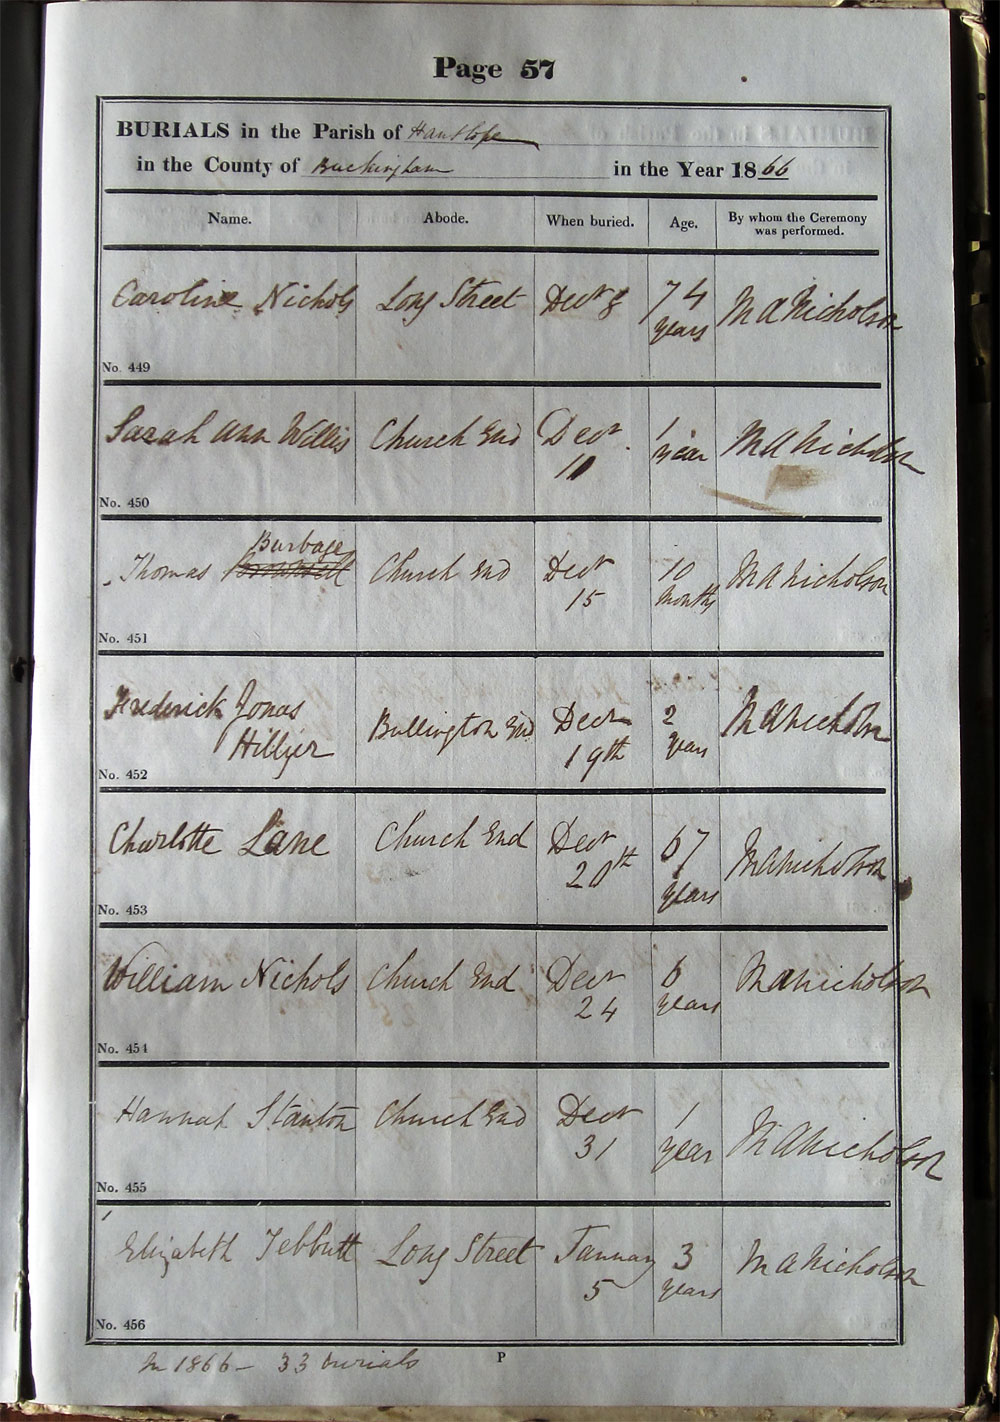 Page 57
BURIALS in the Parish of Hanslope
in the County of Buckingham in the Year 1866
Name. Abode. When buried. Age. By whom the Ceremony was performed.
Caroline Nichols Long Street Decr 8 74 years M A Nicholson
No. 449
Sarah Ann Willis Church End Decr 10 1 year M A Nicholson
No. 450
Burbage
Thomas Church End Decr 15 10 Months M A Nicholson
No. 451
Frederick Jonas Hillyer Bullington End Decr 19th 2 years M A Nicholson
No. 452
Charlotte Lane Church End Decr 20th 67 years M A Nicholson
No. 453
William Nichols Church End Decr 24 6 years M A Nicholson
No. 454
Hannah Stanton Church End Decr 31 1 year M A Nicholson
No. 455
Elizabeth Tebbutt Long Street January 5 3 years M A Nicholson
No. 456
In 1866 - 33 burials
P